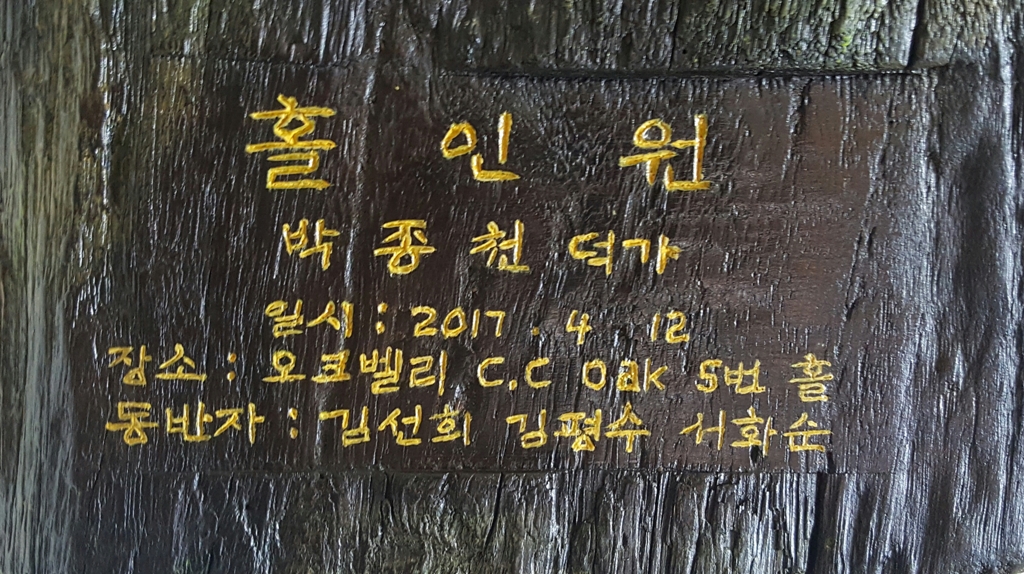 홀 인 원
박 종 천 덕갸
일시 : 2017 . 4 . 12
장소 : 오크벨리 C.C Oak 5번 홀
동반자 : 김선희 김평수 서화순